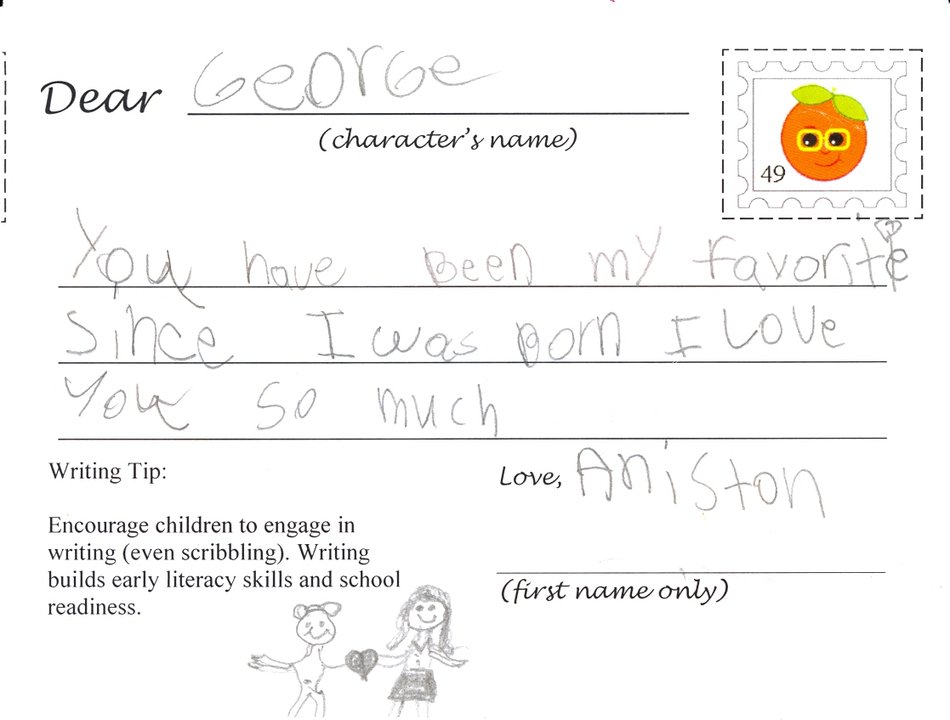 Dear GeorGe
(character's name)
49
You have Been my favorite
Since I was born I Love
You so much
Writing Tip:
Love, Aniston
Encourage children to engage in
writing (even scribbling). Writing
builds early literacy skills and school
readiness.
(first name only)